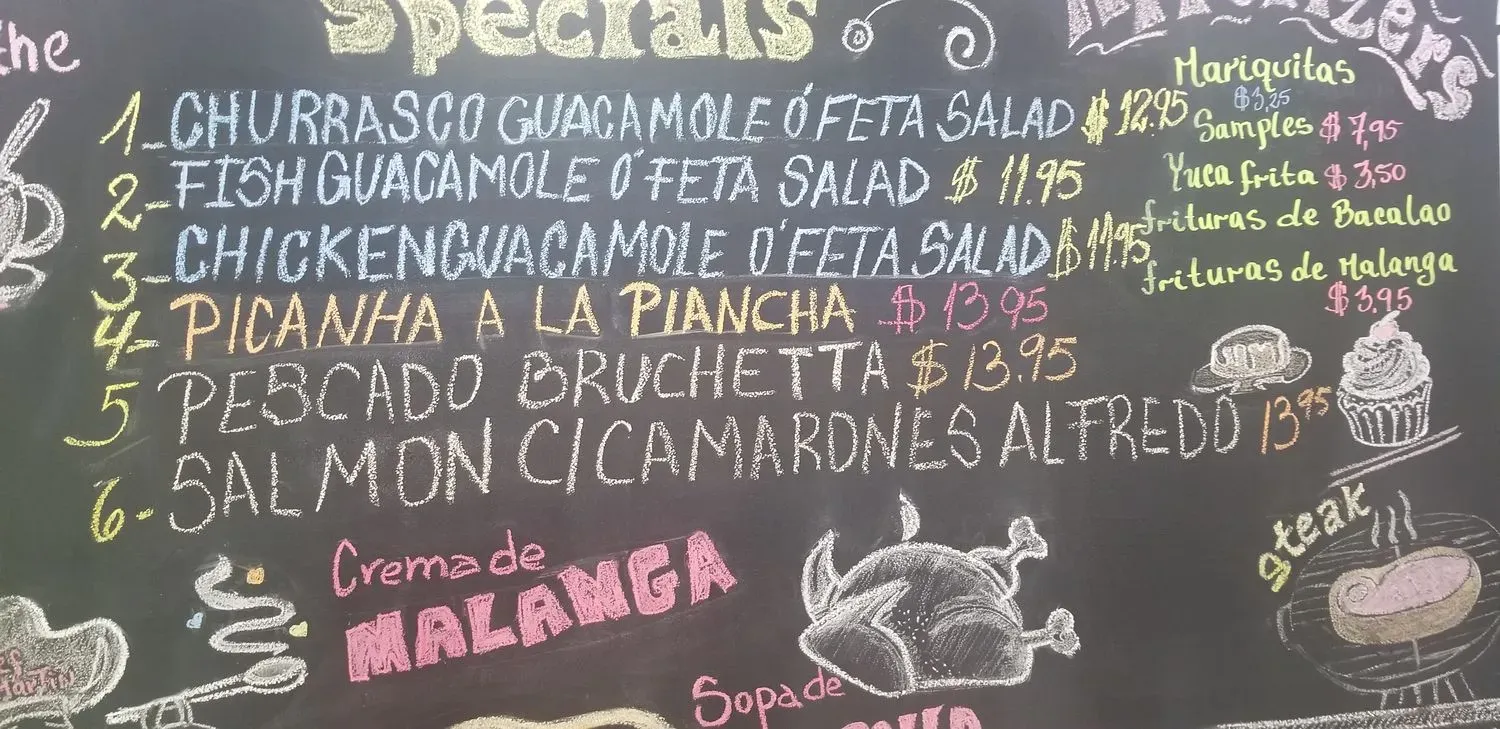 the
Specials
1-CHURRASCO GUACAMOLE Ó FETA SALAD $12.95
2-FISH GUACAMOLE Ó FETA SALAD $11.95
3-CHICKEN GUACAMOLE O' FETA SALAD $11.95
4-PICANHA A LA PIANCHA $13.95
5 PESCADO BRUCHETTA $13.95
6-SALMON C/CAMARONES ALFREDO 13.95
Appetizers
Mariquitas
$3,25
Samples $7,95
Yuca frita $3,50
frituras de Bacalao
frituras de Malanga
$3.95
Crema de
MALANGA
Sopa de
Steak
Martin